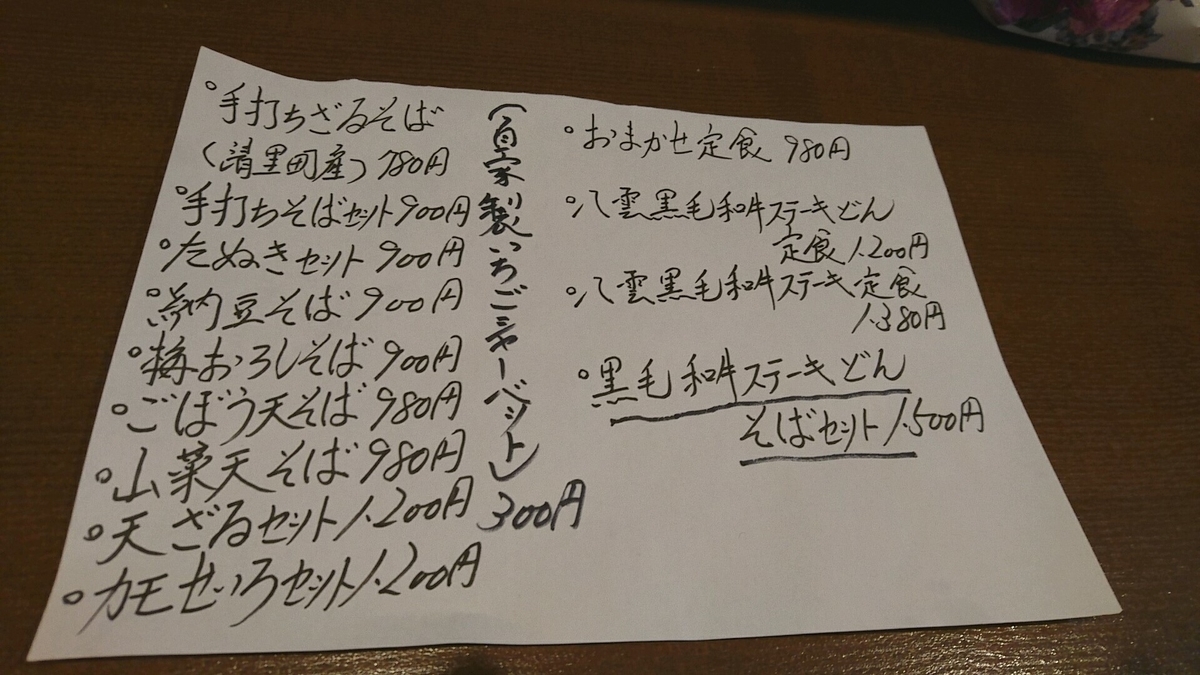 ° 手打ちざるそば
(清里町産) 780円
° 手打ちそばセット 900円
° たぬきセット 900円
° 納豆そば 900円
° 梅おろしそば 900円
° ごぼう天そば 980円
° 山菜天そば 980円
° 天ざるセット 1.200円
° カモせいろセット 1.200円
(自家製いちごシャーベット)
300円
° おまかせ定食 980円
° 八雲黒毛和牛ステーキどん
定食 1.200円
° 八雲黒毛和牛ステーキ定食
1.380円
° 黒毛和牛ステーキどん
そばセット 1.500円